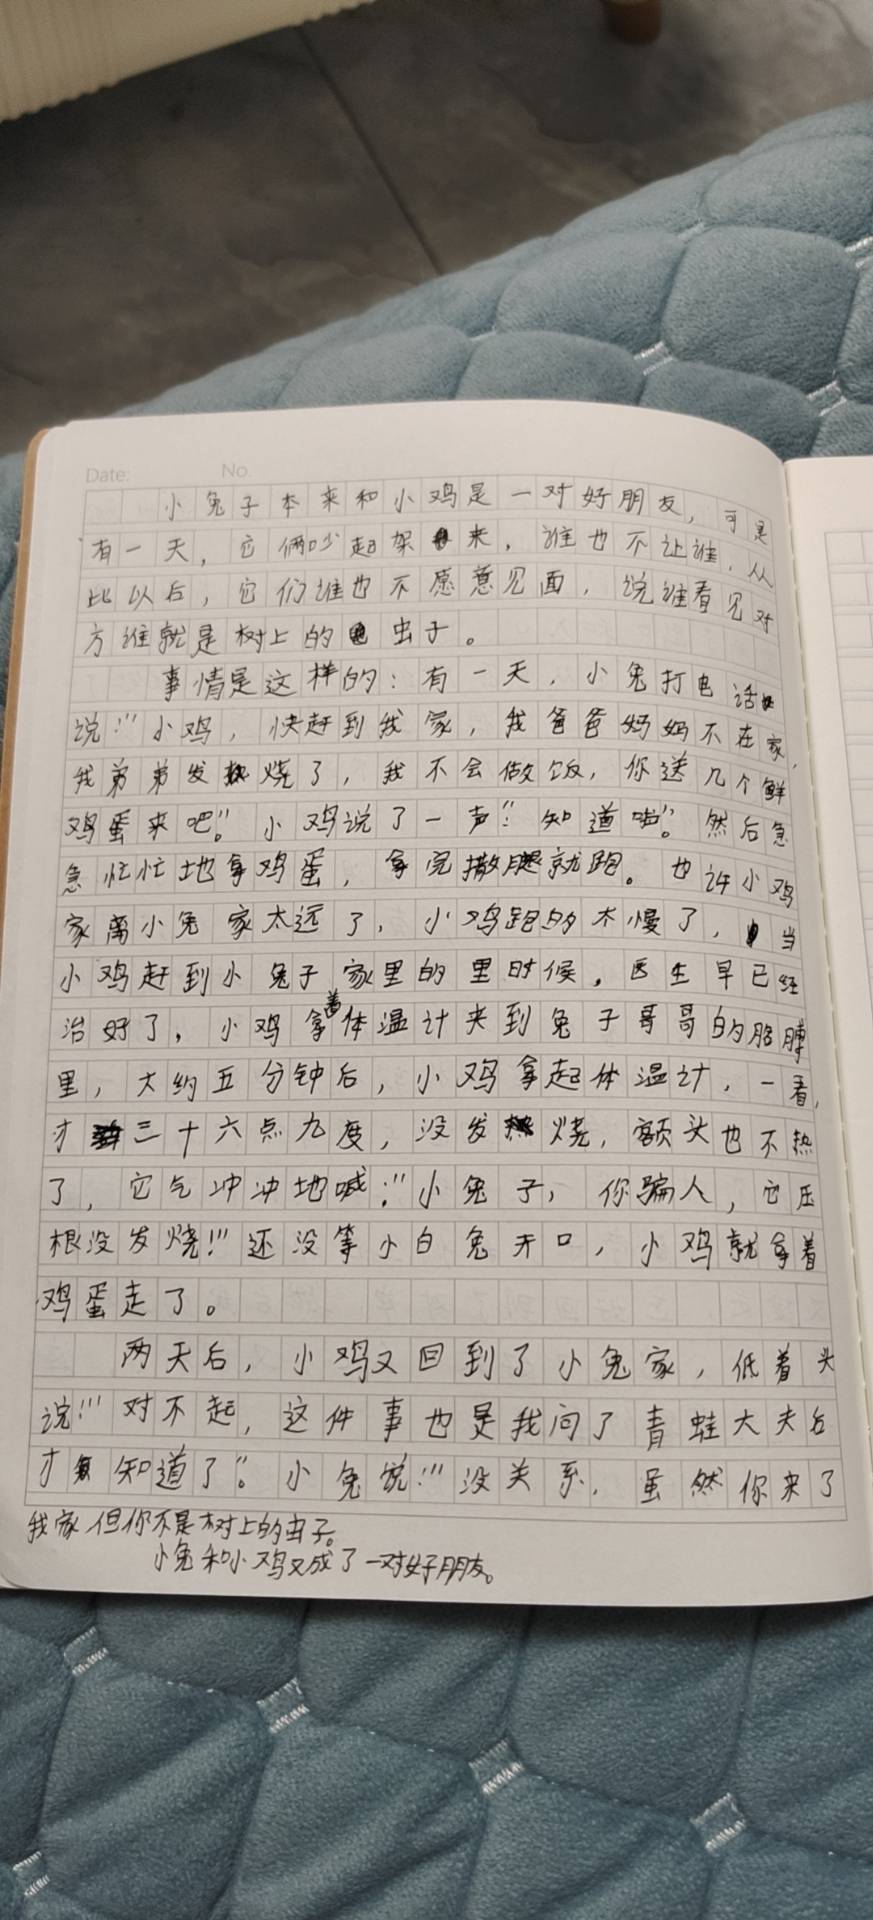 Date:
No
小兔子本来和小鸡是一对好朋友，可是
有一天，它俩吵起架来，谁也不让谁，从
比以后，它们谁也不愿意见面，说谁看见对
方谁就是树上的虫子。
事情是这样的：有一天，小兔打电话
说：“小鸡，快赶到我家，我爸爸妈妈不在家，
我弟弟发烧了，我不会做饭，你送几个鲜
鸡蛋来吧。”小鸡说了一声：“知道啦”。然后急
急忙忙地拿鸡蛋，拿完撒腿就跑。也许小鸡
家离小兔家太远了，小鸡跑的太慢了，当
小鸡赶到小兔子家里的里时候，医生早已经
治好了，小鸡拿着体温计来到兔子哥哥的胳膊
里，大约五分钟后，小鸡拿起体温计，一看，
才三十六点九度，没发烧，额头也不热
了，它气冲冲地喊：“小兔子，你骗人，它压
根没发烧！”还没等小白兔开口，小鸡就拿着
鸡蛋走了。
两天后，小鸡又回到了小兔家，低着头
说：“对不起，这件事也是我问了青蛙大夫后
才知道了”。小兔说：“没关系，虽然你来了
我家但你不是树上的虫子。
小兔和小鸡又成了一对好朋友。